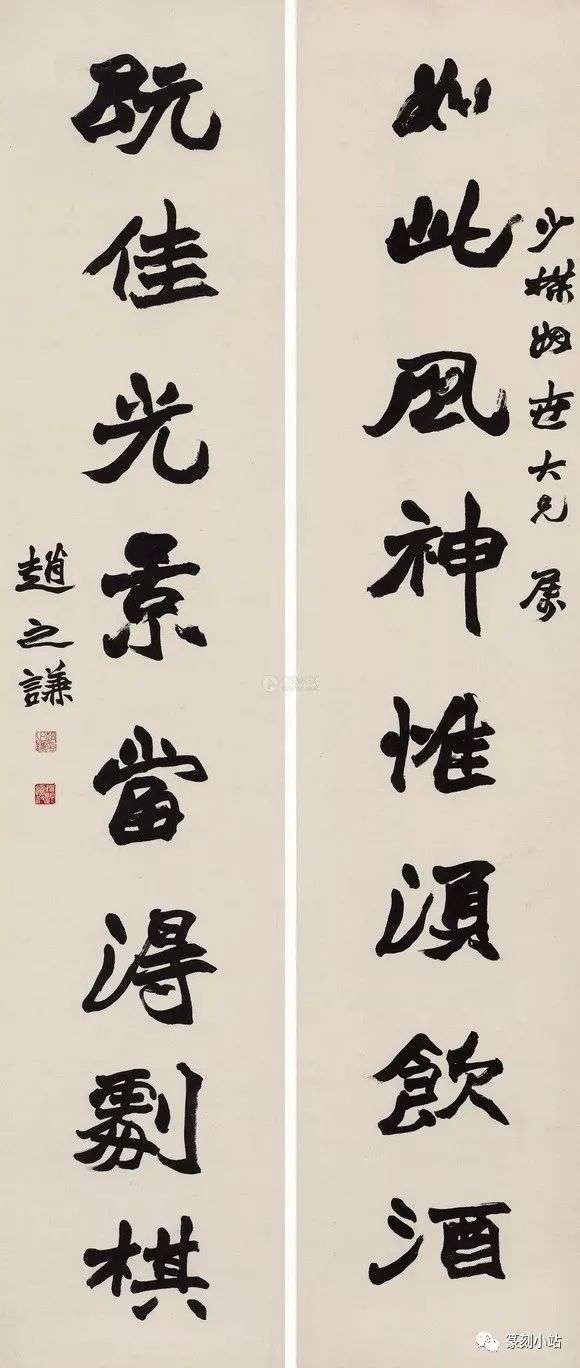 少楳姻世大兄 屬
如此風神惟湏飲酒
既佳光景當淂劇棋
趙之謙
篆刻小站